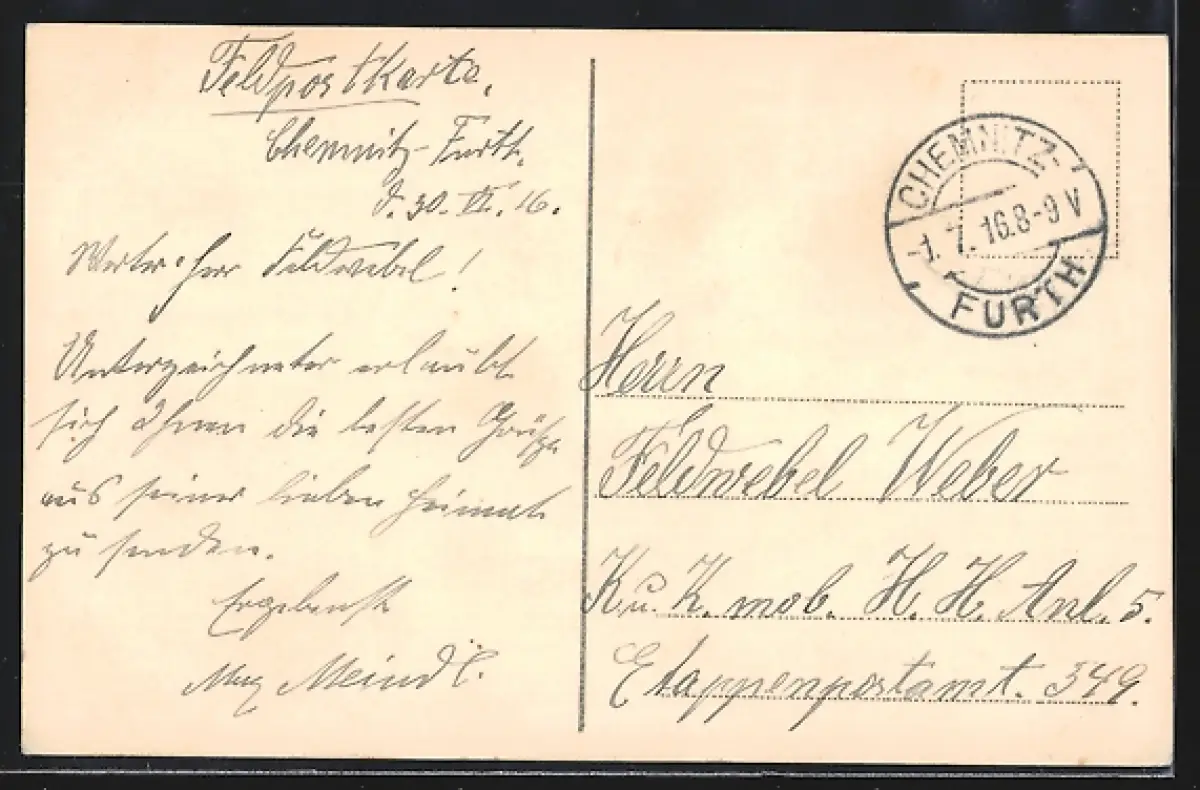 Feldpostkarte.
Chemnitz-Furth.
d. 30. VI. 16.
Werter Herr Feldwebel!
Unterzeichneter erlaubt
sich Ihnen die besten Grüße
aus seiner lieben Heimat
zu senden.
Ergebenst
Max Meindl.
CHEMNITZ-
1. 7. 16. 8-9 V
FURTH
Herrn
Feldwebel Weber
K. u. K. mob. H. H. Anl. 5.
Etappenpostamt. 349.